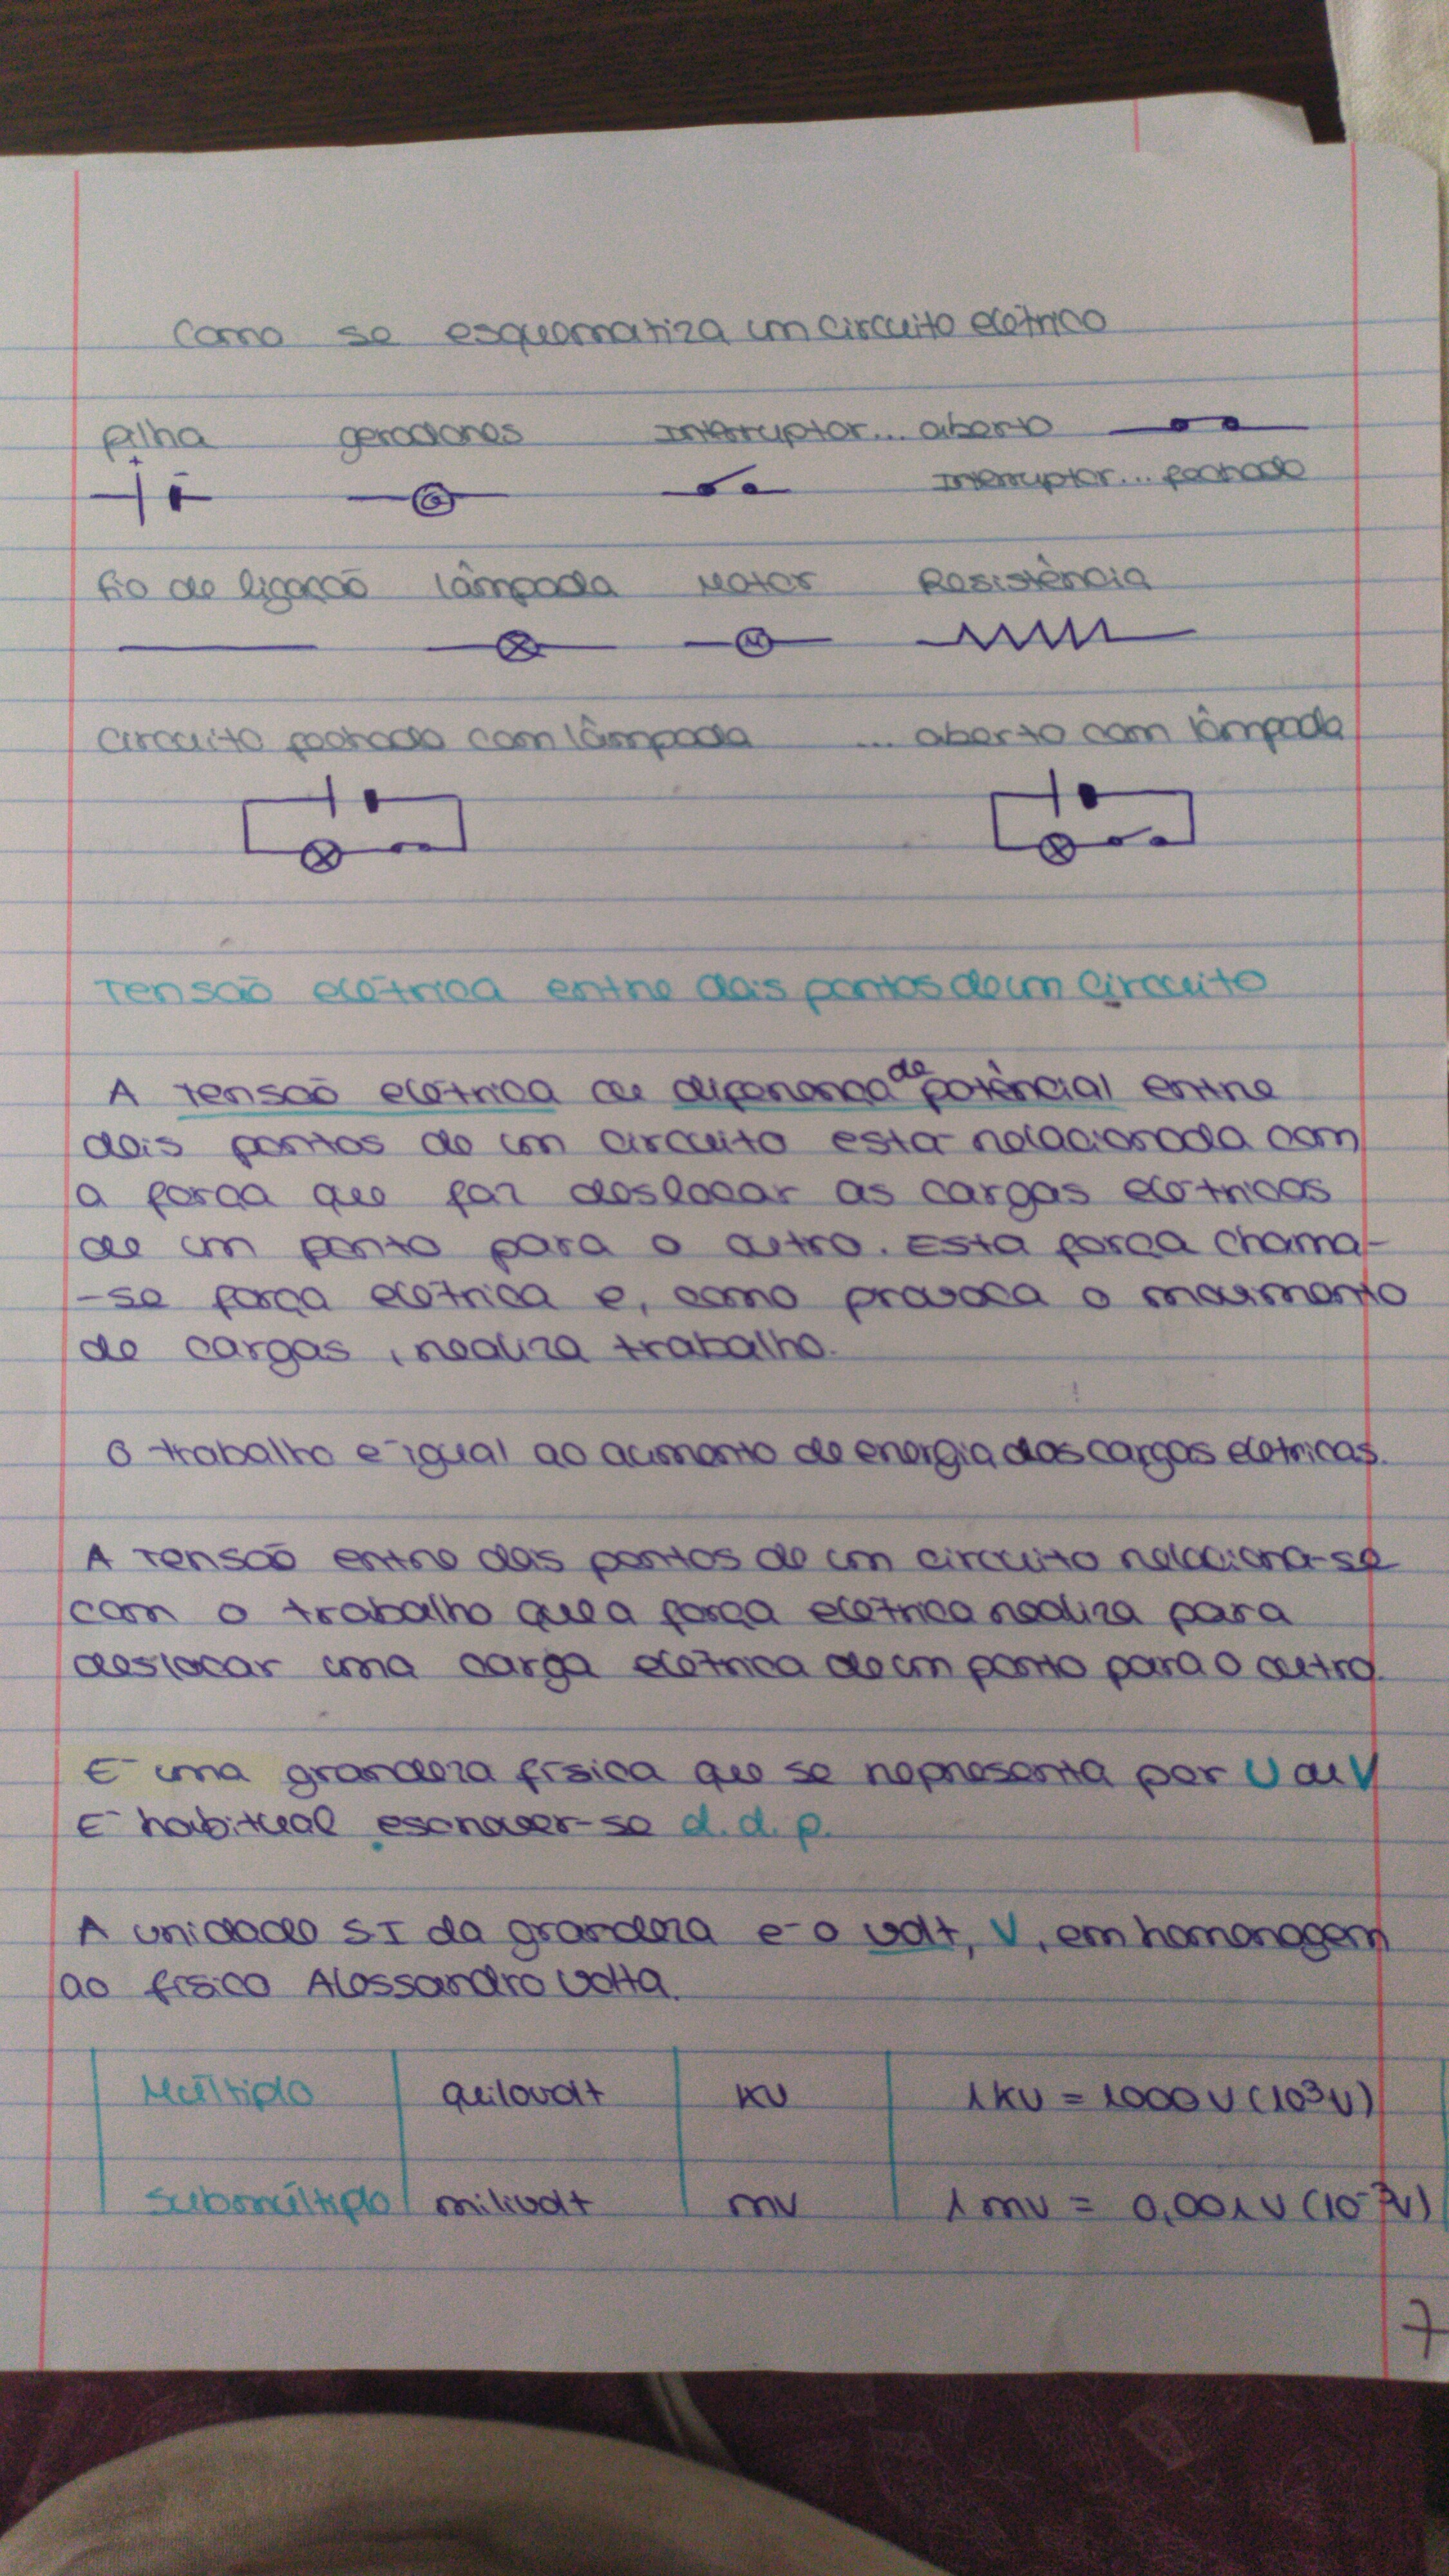 Como se esquematiza um circuito elétrico
pilha geradores Interruptor... aberto
Interruptor... fechado
+ -
G
fio de ligação lâmpada Motor Resistência
M
circuito fechado com lâmpada ... aberto com lâmpada
Tensão elétrica entre dois pontos de um circuito
A tensão elétrica ou diferença de potêncial entre
dois pontos de um circuito está relacionada com
a força que faz deslocar as cargas elétricas
de um ponto para o outro. Esta força chama-
-se força elétrica e, como provoca o movimento
de cargas, realiza trabalho.
O trabalho é igual ao aumento de energia das cargas elétricas.
A tensão entre dois pontos de um circuito relaciona-se
com o trabalho que a força elétrica realiza para
deslocar uma carga elétrica de um ponto para o outro.
É uma grandeza física que se representa por U ou V
É habitual escrever-se d.d.p.
A unidade SI da grandeza é o volt, V, em homenagem
ao físico Alessandro Volta.
Múltiplo quilovolt KV 1KV = 1000V (10³V)
Submúltiplo milivolt mV 1mV = 0,001V (10⁻³V)
7